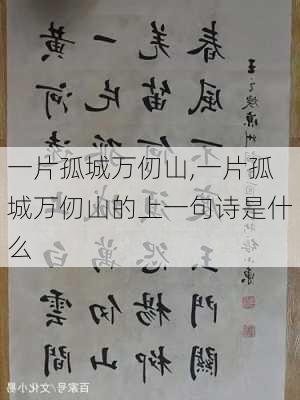 一片孤城万仞山,一片孤
城万仞山的上一句诗是什
么
黄河遠上白雲間
一片孤城萬仞山
羌笛何須怨楊柳
春風不度玉門關
王之渙涼州詞
百家号/文化小易